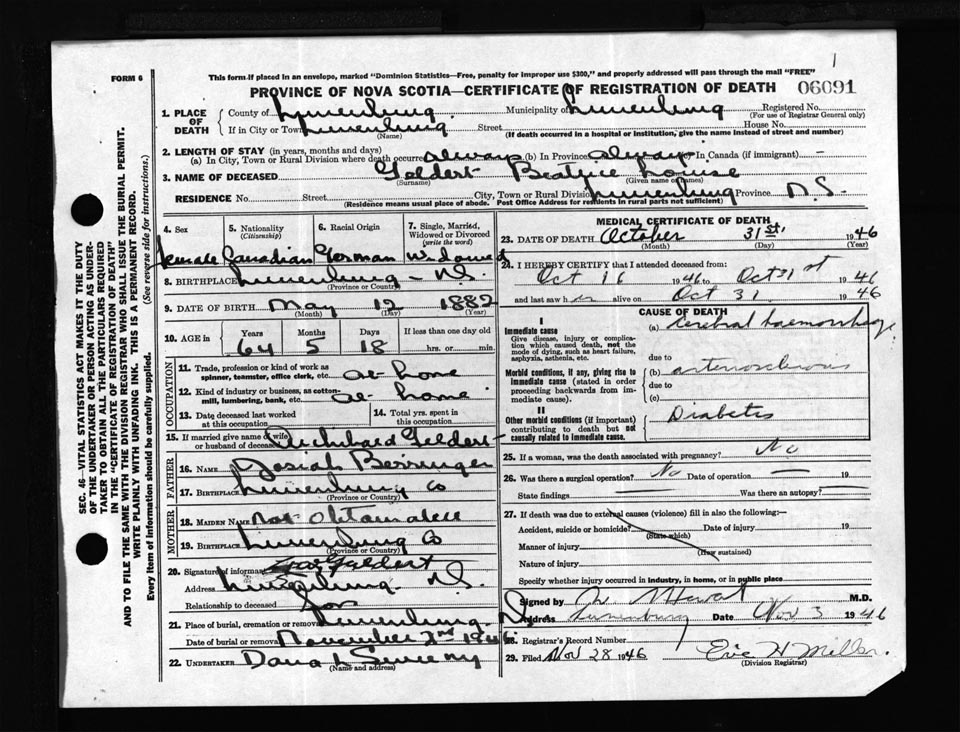 1
FORM 6
This form if placed in an envelope, marked "Dominion Statistics—Free, penalty for improper use $300," and properly addressed will pass through the mail "FREE"
PROVINCE OF NOVA SCOTIA—CERTIFICATE OF REGISTRATION OF DEATH 06091
1. PLACE OF DEATH County of Lunenburg Municipality of Lunenburg Registered No.
(For use of Registrar General only)
If in City or Town Lunenburg Street House No.
(Name) (If death occurred in a hospital or institution, give the name instead of street and number)
2. LENGTH OF STAY (in years, months and days)
(a) In City, Town or Rural Division where death occurred always (b) In Province always In Canada (if immigrant) —
3. NAME OF DECEASED Geldert Beatrice Louise
(Surname) (Given name or names)
RESIDENCE No. Street City, Town or Rural Division Lunenburg Province N.S.
(Residence means usual place of abode. Post Office Address for residents in rural parts not sufficient)
4. Sex 5. Nationality (Citizenship) 6. Racial Origin 7. Single, Married, Widowed or Divorced (write the word)
Female Canadian German Widowed
8. BIRTHPLACE Lunenburg - N.S.
(Province or Country)
9. DATE OF BIRTH May 12 1882
(Month) (Day) (Year)
10. AGE in Years Months Days If less than one day old
64 5 18 hrs. or min.
OCCUPATION
11. Trade, profession or kind of work as spinner, teamster, office clerk, etc. at home
12. Kind of industry or business, as cotton-mill, lumbering, bank, etc. at home
13. Date deceased last worked at this occupation 14. Total yrs. spent in this occupation
15. If married give name of wife or husband of deceased Archibald Geldert
FATHER
16. Name Josiah
17. Birthplace Lunenburg Co
(Province or Country)
MOTHER
18. Maiden Name Not Obtainable
19. Birthplace Lunenburg Co
(Province or Country)
20. Signature of informant Geldert
Address Lunenburg N.S.
Relationship to deceased Son
21. Place of burial, cremation or removal Lunenburg N.S.
Date of burial or removal November 2nd 1946
22. UNDERTAKER Dana L Sweeny
(Name and address)
MEDICAL CERTIFICATE OF DEATH
23. DATE OF DEATH October 31st. 1946
(Month) (Day) (Year)
24. I HEREBY CERTIFY that I attended deceased from:
Oct 16 1946 to Oct 31st 1946
and last saw her alive on Oct 31 1946
CAUSE OF DEATH
I
Immediate cause
Give disease, injury or complication which caused death, not the mode of dying, such as heart failure, asphyxia, asthenia, etc.
(a) Cerebral haemorrhage
due to
Morbid conditions, if any, giving rise to immediate cause (stated in order proceeding backwards from immediate cause).
(b) arteriosclerosis
due to
(c)
II
Other morbid conditions (if important) contributing to death but not causally related to immediate cause.
Diabetes
25. If a woman, was the death associated with pregnancy? No
26. Was there a surgical operation? No Date of operation — 19
State findings — Was there an autopsy? —
27. If death was due to external causes (violence) fill in also the following:—
Accident, suicide or homicide? Date of injury 19
(State which)
Manner of injury
(How sustained)
Nature of injury
Specify whether injury occurred in industry, in home, or in public place
Signed by M.D.
Address Lunenburg Date Nov 3 1946
28. Registrar's Record Number
29. Filed Nov 28 1946 H Miller.
(Division Registrar)
SEC. 46—VITAL STATISTICS ACT MAKES IT THE DUTY
OF THE UNDERTAKER OR PERSON ACTING AS UNDER-
TAKER TO OBTAIN ALL THE PARTICULARS REQUIRED
IN THE "CERTIFICATE OF REGISTRATION OF DEATH"
AND TO FILE THE SAME WITH THE DIVISION REGISTRAR WHO SHALL ISSUE THE BURIAL PERMIT.
WRITE PLAINLY WITH UNFADING INK. THIS IS A PERMANENT RECORD.
Every item of information should be carefully supplied. (See reverse side for instructions.)